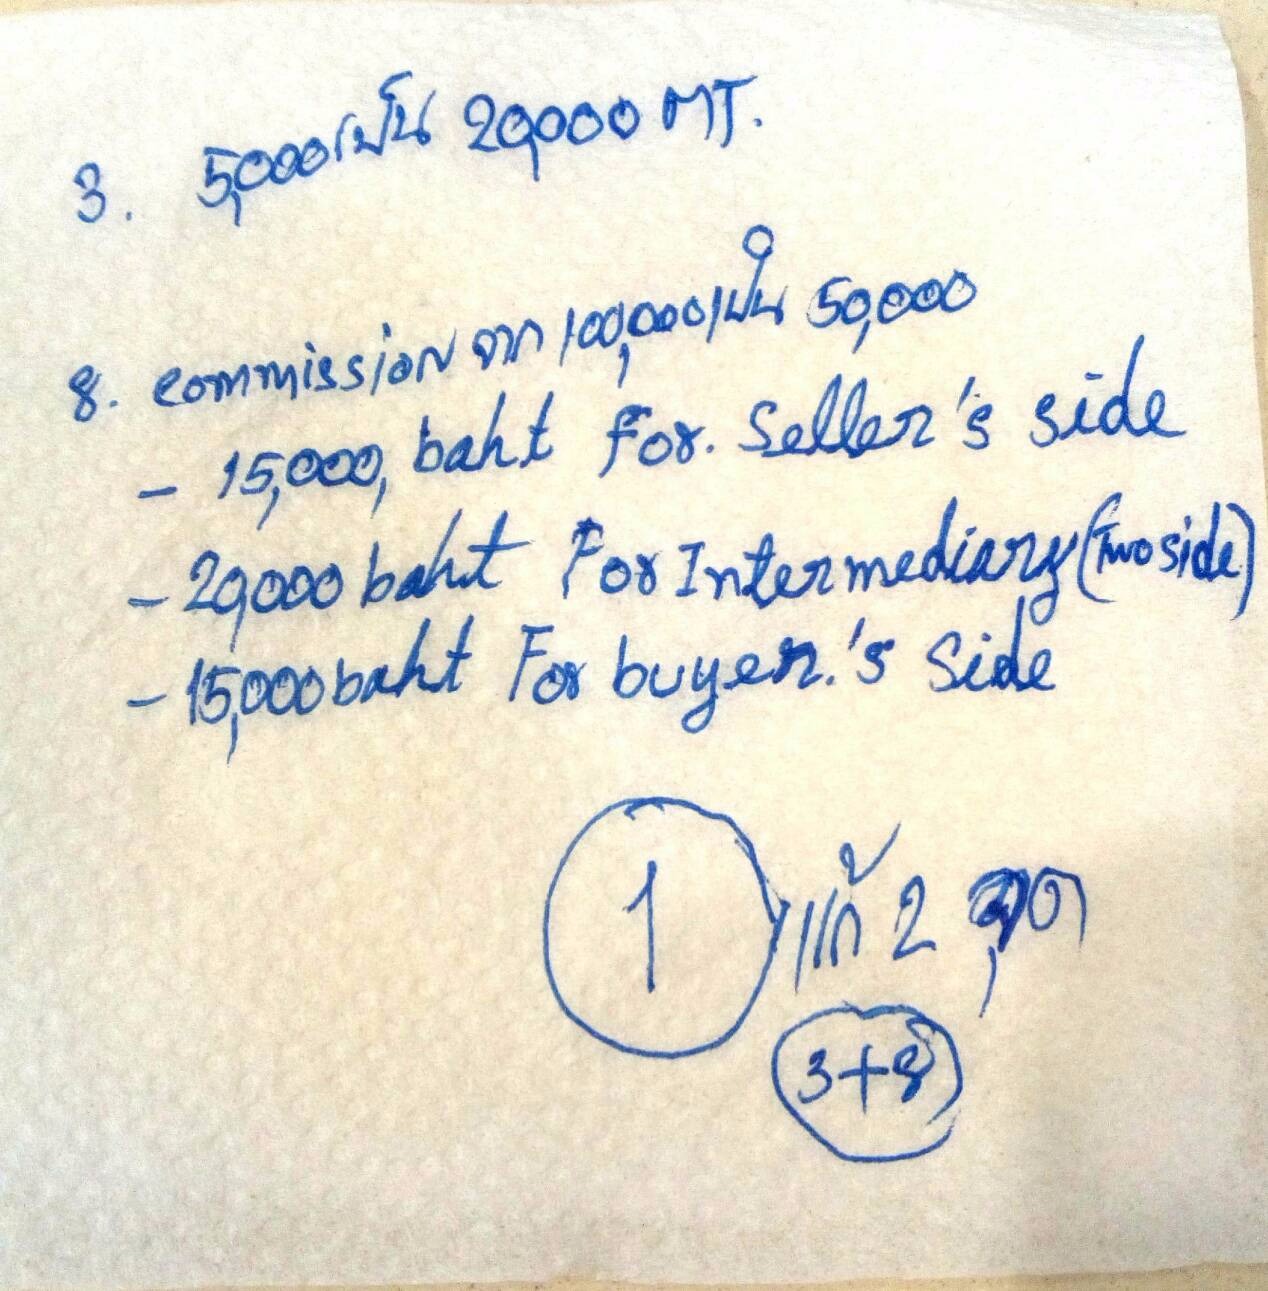 3. 5,000เป็น 20,000 MT.
8. commission จาก 100,000เป็น 50,000
- 15,000, baht for. Seller's side
- 20,000 baht For Intermediary (Two side)
- 15,000 baht For buyer.'s Side
1 แก้ 2 จุด
3+8